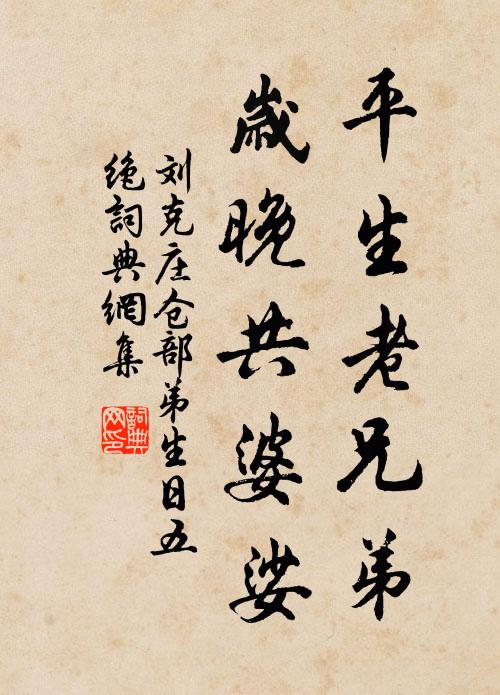 平生老兄弟
歳晚共婆娑
刘克庄仓部弟生日五
绝詞典網集
詞典
网印